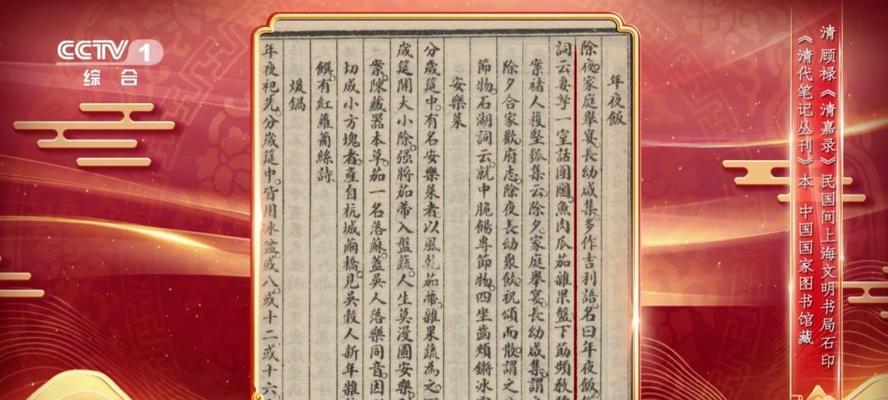 CCTV 1
综合
年夜飯
除夜家庭舉宴長幼咸集多作吉利語名曰年夜飯
詞云妻孥一室話團圞魚肉瓜茄雜果盤下筯頻教
案褚人穫堅瓠集云除夕家庭舉宴長幼咸集謂
除夕合家歡府志除夜長幼聚飲祝頌而散謂之
節物石湖詞云就中脆餳專節物四坐齒頰鏘冰
安樂菜
分歲筵中有名安樂菜者以風乾茄蒂雜果蔬為之
歲筵開大小除強將茄蒂入盤蔬人生莫漫圖安樂
案陳藏器本草茄一名落蘇蓋吳人落樂同音因
切成小方塊者產自杭城繭橋見吳穀人新年雜
饌有紅蘿蔔絲詩
煖鍋
年夜祀先分歲筵中皆用冰盆或八或十二或十六
清 顾禄《清嘉录》民国间上海文明书局石印
《清代笔记丛刊》本 中国国家图书馆藏